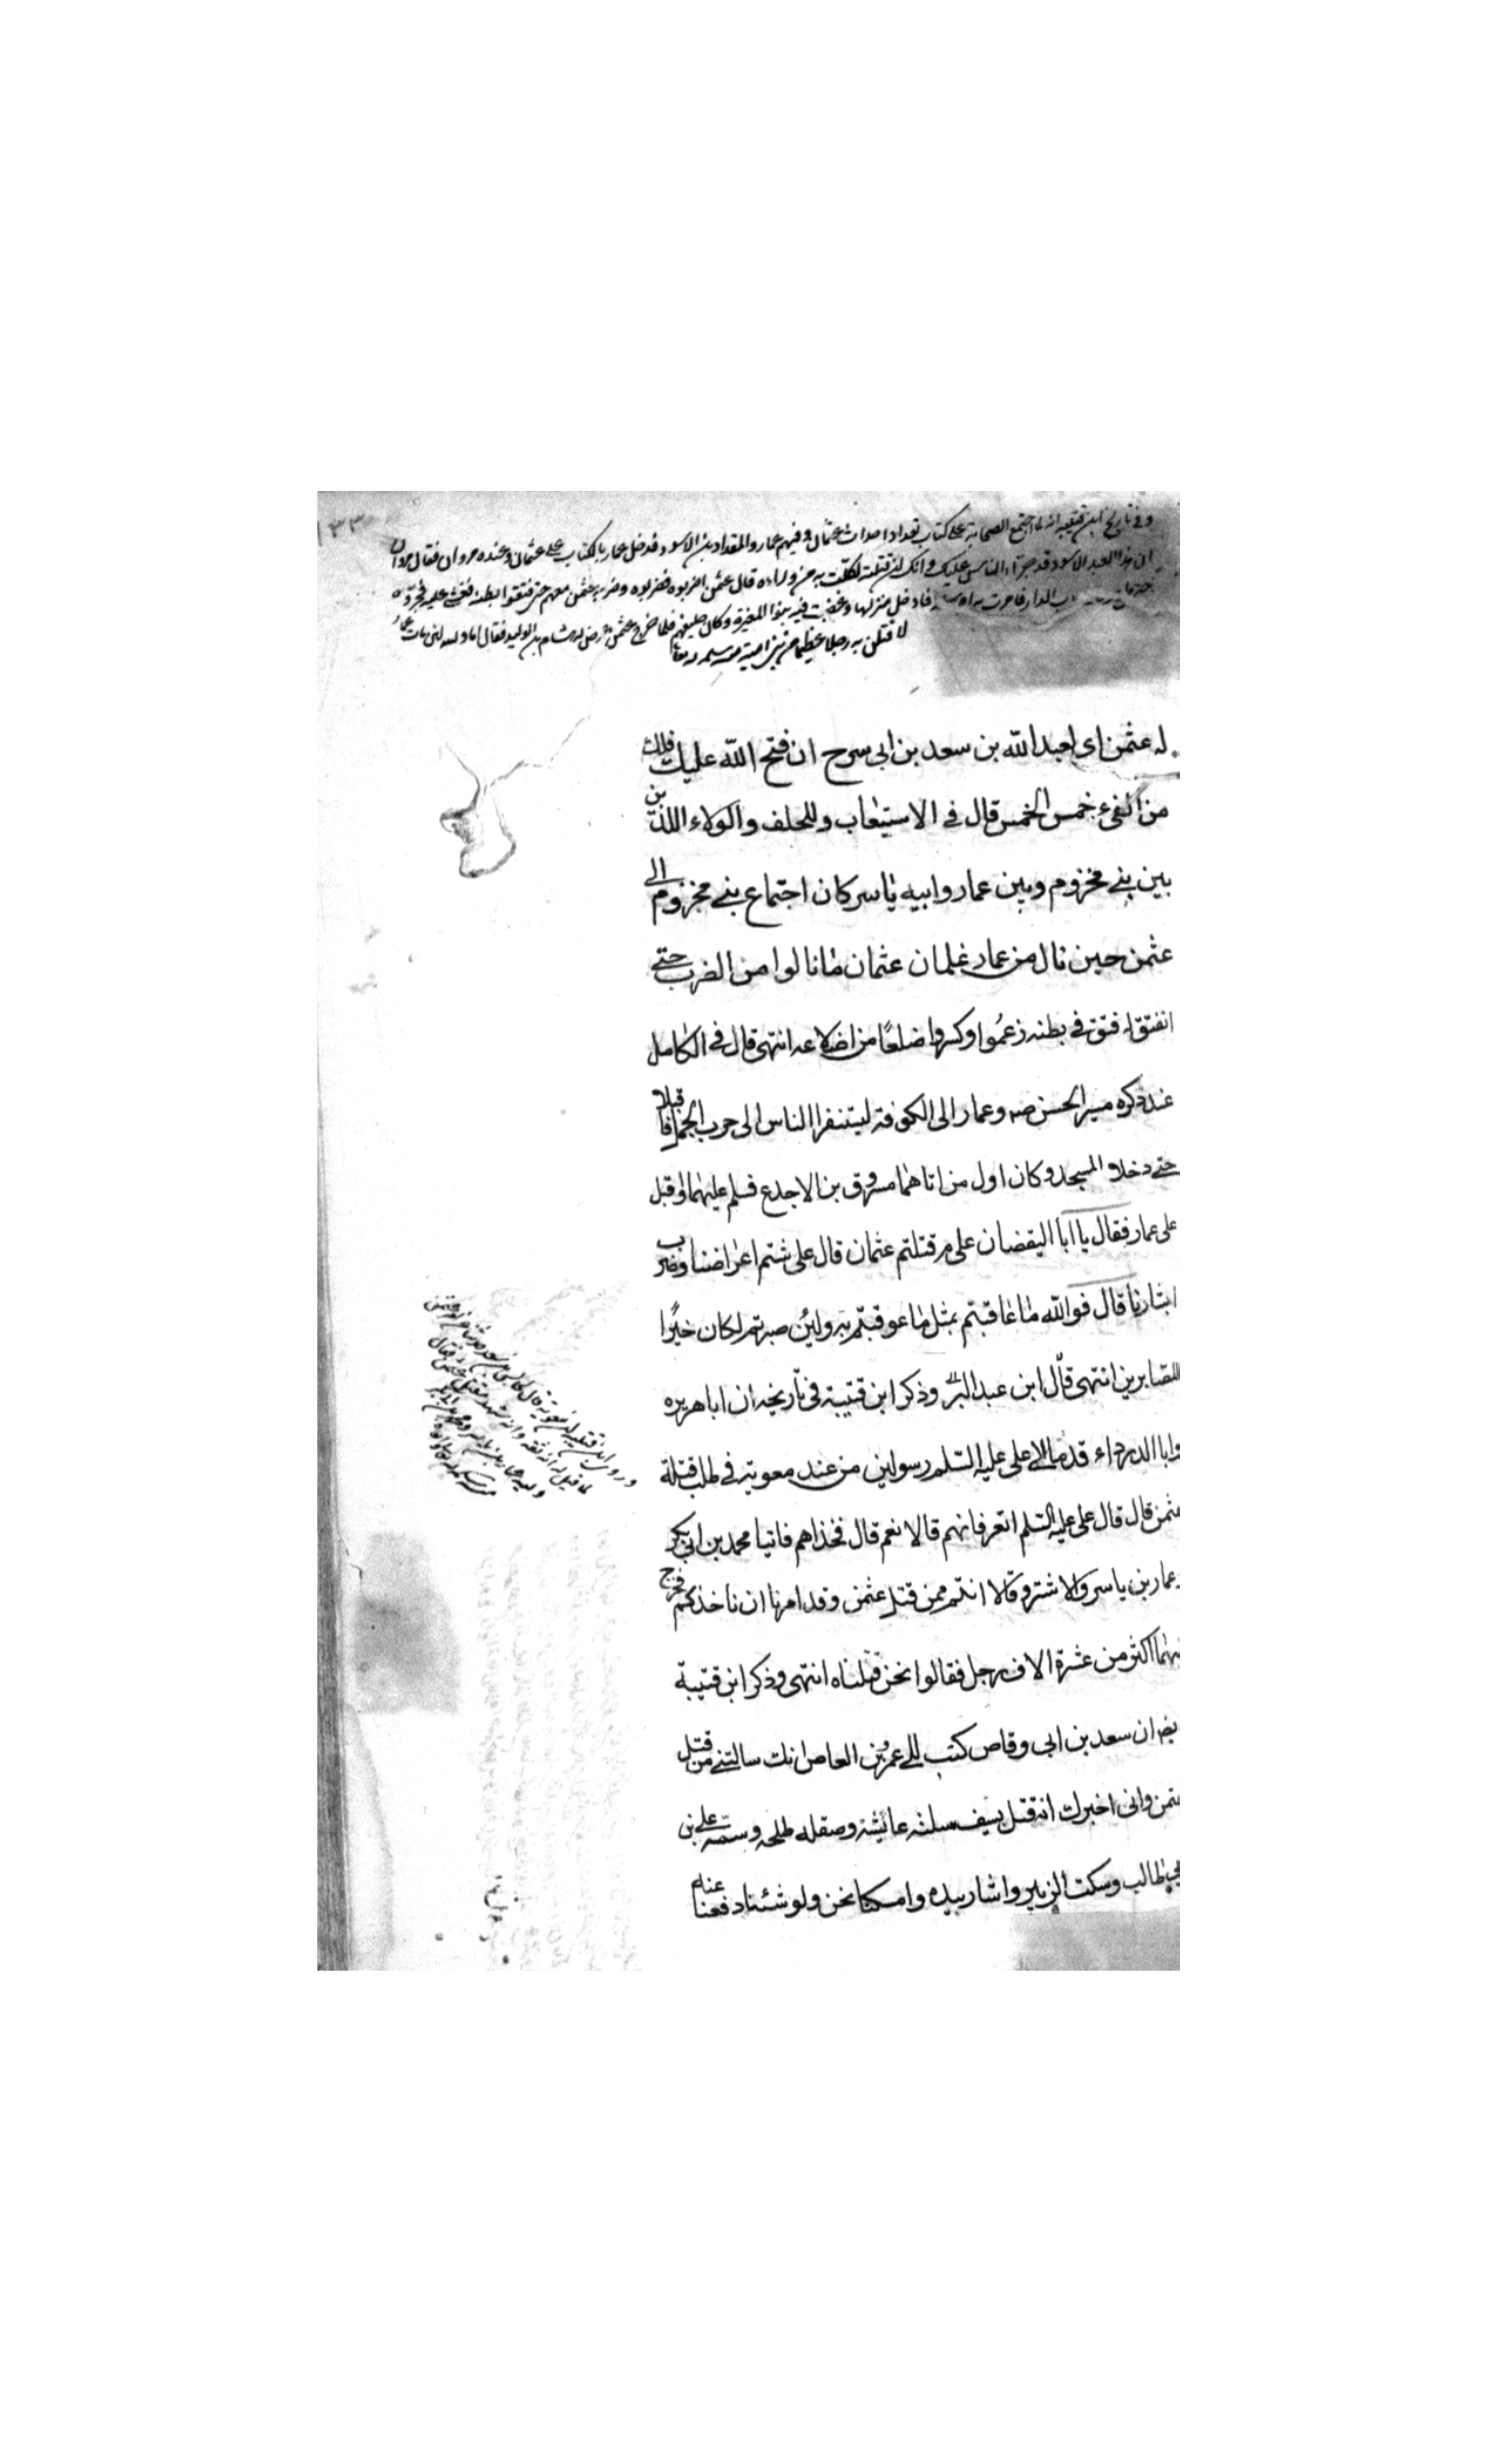 ١٣٣
وفي تاريخ ابن قتيبة انه لما اجتمع الصحابة على كتاب تعداد احداث عثمان وفيهم عمار والمقداد بن الاسود فدخل عمار بالكتاب على عثمان وعنده مروان فقال مروان
ان هذا العبد الاسود قد جرّاء الناس عليك وانك ان قتلته نكلت به من وراءه قال عثمن اضربوه فضربوه وضربه عثمن معهم حتى فتقوا بطنه فغشي عليه فجرّوه
الدار فامرت به ام سلمة فادخل منزلها وغضبت فيه بنوا المغيرة وكان حليفهم فلما خرج عثمن عرض له هشام بن الوليد فقال اما والله لئن مات عمار
لاقتلن به رجلا عظيما من بني امية
له عثمن اى لعبدالله بن سعد بن ابى سرح ان فتح الله عليك فلك
من الفىء خمس الخمس قال في الاستيعاب وللحلف والولاء اللذين
بين بني مخزوم وبين عمار وابيه ياسر كان اجتماع بني مخزوم الى
عثمن حين نال من عمار غلمان عثمان ما نالوا من الضرب حتى
انفتق له فتق في بطنه زعموا وكسروا ضلعًا من اضلاعه انتهى قال في الكامل
عند ذكره مسير الحسن وعمار الى الكوفة ليستنفرا الناس الى حرب الجمل فاقبلا
حتى دخلا المسجد وكان اول من اتاهما مسروق بن الاجدع فسلم عليهما واقبل
على عمار فقال يا ابا اليقضان على م قتلتم عثمان قال على شتم اعراضنا وضرب
ابشارنا قال فوالله ما عاقبتم بمثل ما عوقبتم به ولئن صبرتم لكان خيرًا
للصابرين انتهى قال ابن عبد البر وذكر ابن قتيبة في تاريخه ان ابا هريره
وابا الدرداء قدما الى على عليه السّلم رسولين من عند معوية في طلب قتلة
عثمن قال قال على عليه السّلم اتعرفانهم قالا نعم قال فخذاهم فاتيا محمد بن ابي بكر
وعمار بن ياسر والاشتر وقالا انتم ممن قتل عثمن وقد امرنا ان ناخذكم فخرج
اليهما اكثر من عشرة الاف رجل فقالوا نحن قتلناه انتهى وذكر ابن قتيبة
ايضا ان سعد بن ابى وقاص كتب الى عمرو بن العاص انك سالتني من قتل
عثمن وانى اخبرك انه قتل بسيف سلته عائيشة وصقله طلحه وسمّه على بن
ابي طالب وسكت الزبير واشار بيده وامسكنا نحن ولو شئنا دفعنا عنه